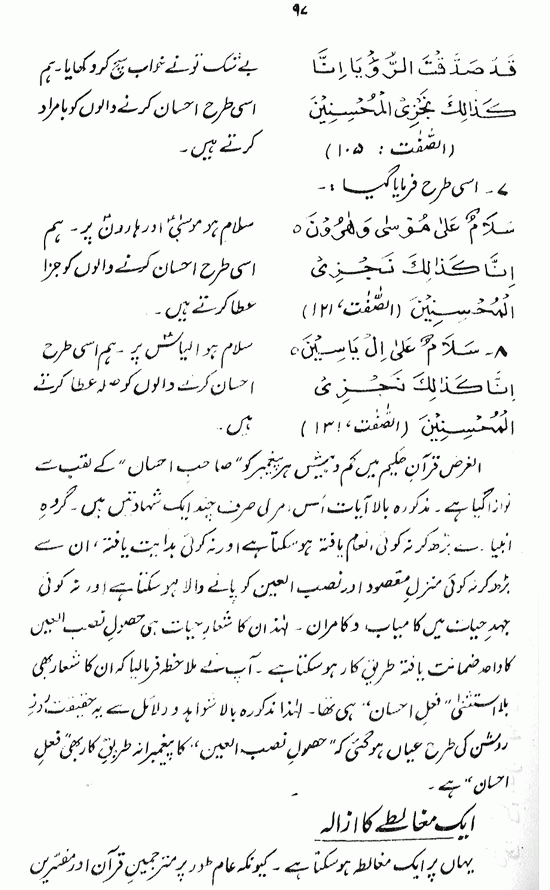 ۹۷
قَدْ صَدَّقْتَ الرُّؤْيَا اِنَّا
كَذَالِكَ نَجْزِى الْمُحْسِنِيْنَ
(الصّٰفّٰت : ۱۰۵)
بے شک تو نے خواب سچ کر دکھایا۔ ہم
اسی طرح احسان کرنے والوں کو بامراد
کرتے ہیں۔
۷۔ اسی طرح فرمایا گیا :۔
سَلَامٌ عَلٰى مُوْسٰى وَهٰرُوْنَ ٥
اِنَّا كَذَالِكَ نَجْزِى
الْمُحْسِنِيْنَ (الصّٰفّٰت، ۱۲۱)
سلام ہو موسیٰؑ اور ہارونؑ پر۔ ہم
اسی طرح احسان کرنے والوں کو جزا
عطا کرتے ہیں۔
۸۔ سَلَامٌ عَلٰى اِلْ يَاسِيْنَ ٥
اِنَّا كَذَالِكَ نَجْزِى
الْمُحْسِنِيْنَ (الصّٰفّٰت، ۱۳۱)
سلام ہو الیاسؑ پر۔ ہم اسی طرح
احسان کرنے والوں کو صلہ عطا کرتے
ہیں۔
الغرض قرآنِ حکیم میں کم و بیش ہر پیغمبر کو "صاحبِ احسان" کے لقب سے
نوازا گیا ہے۔ مذکورہ بالا آیات اُس امر کی صرف چند ایک شہادتیں ہیں۔ گروہِ
انبیاء سے بڑھ کر نہ کوئی انعام یافتہ ہو سکتا ہے اور نہ کوئی ہدایت یافتہ، ان سے
بڑھ کر نہ کوئی منزلِ مقصود اور نصب العین کو پانے والا ہو سکتا ہے اور نہ کوئی
جہدِ حیات میں کامیاب و کامران۔ لہٰذا ان کا شعارِ حیات ہی حصولِ نصب العین
کا واحد ضمانت یافتہ طریقِ کار ہو سکتا ہے۔ آپ نے ملاحظہ فرمالیا کہ ان کا شعار بھی
بلا استثنیٰ "فعلِ احسان" ہی تھا۔ لہٰذا مذکورہ بالا شواہد و دلائل سے یہ حقیقت روزِ
روشن کی طرح عیاں ہو گئی کہ "حصولِ نصب العین" کا پیغمبرانہ طریقِ کار بھی "فعلِ
احسان" ہے۔
ایک مغالطے کا ازالہ
یہاں پر ایک مغالطہ ہو سکتا ہے۔ کیونکہ عام طور پر مترجمینِ قرآن اور مفسّرین